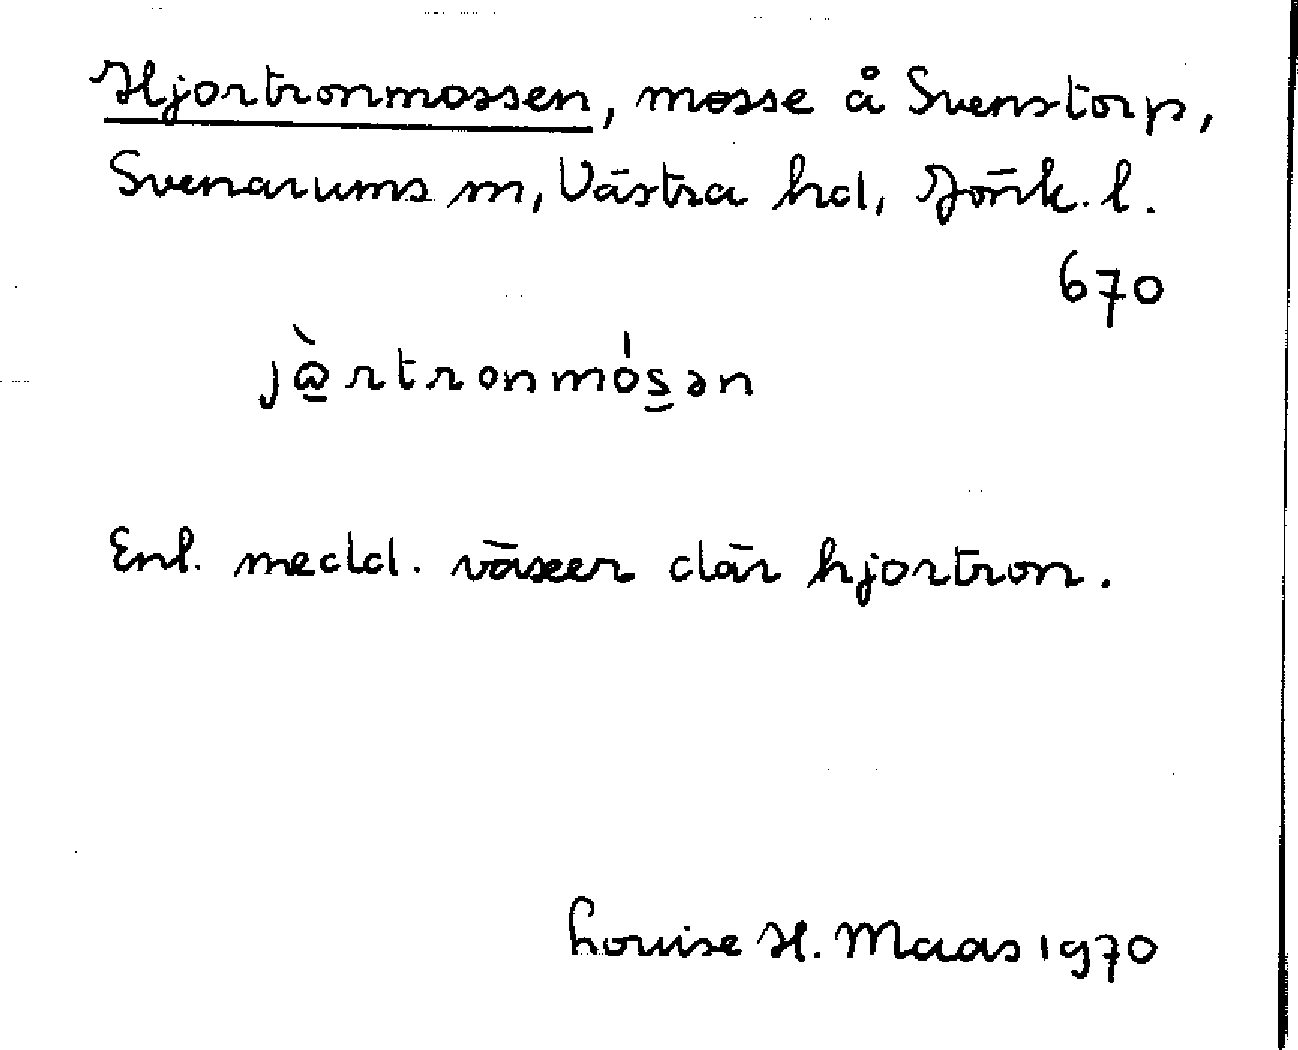 Hjortronmossen, mosse å Svenstorp,
Svenarums sn, Västra hd, Jönk. l.
670
jὼ̱rtronmós̱ən
Enl. medd. växer där hjortron.
Louise H. Maas 1970